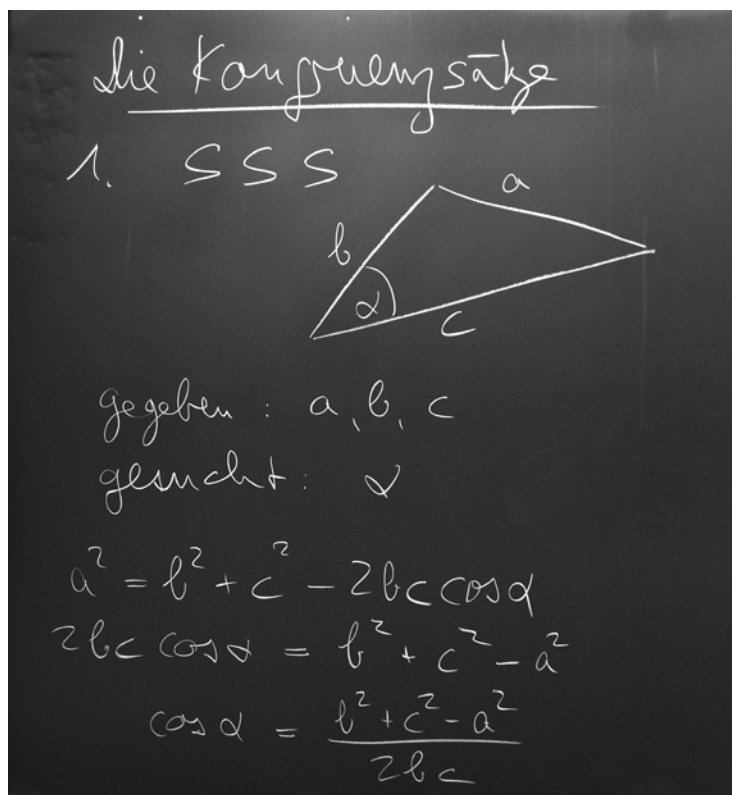 Die Kongruenzsätze
1. SSS
a
b
α
c
gegeben: a, b, c
gesucht: α
a² = b² + c² - 2bc cosα
2bc cosα = b² + c² - a²
cosα = (b² + c² - a²) / 2bc